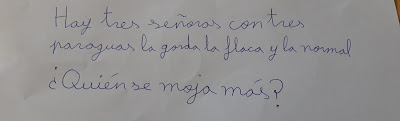 Hay tres señoras con tres
paraguas la gorda la flaca y la normal
¿Quién se moja más?